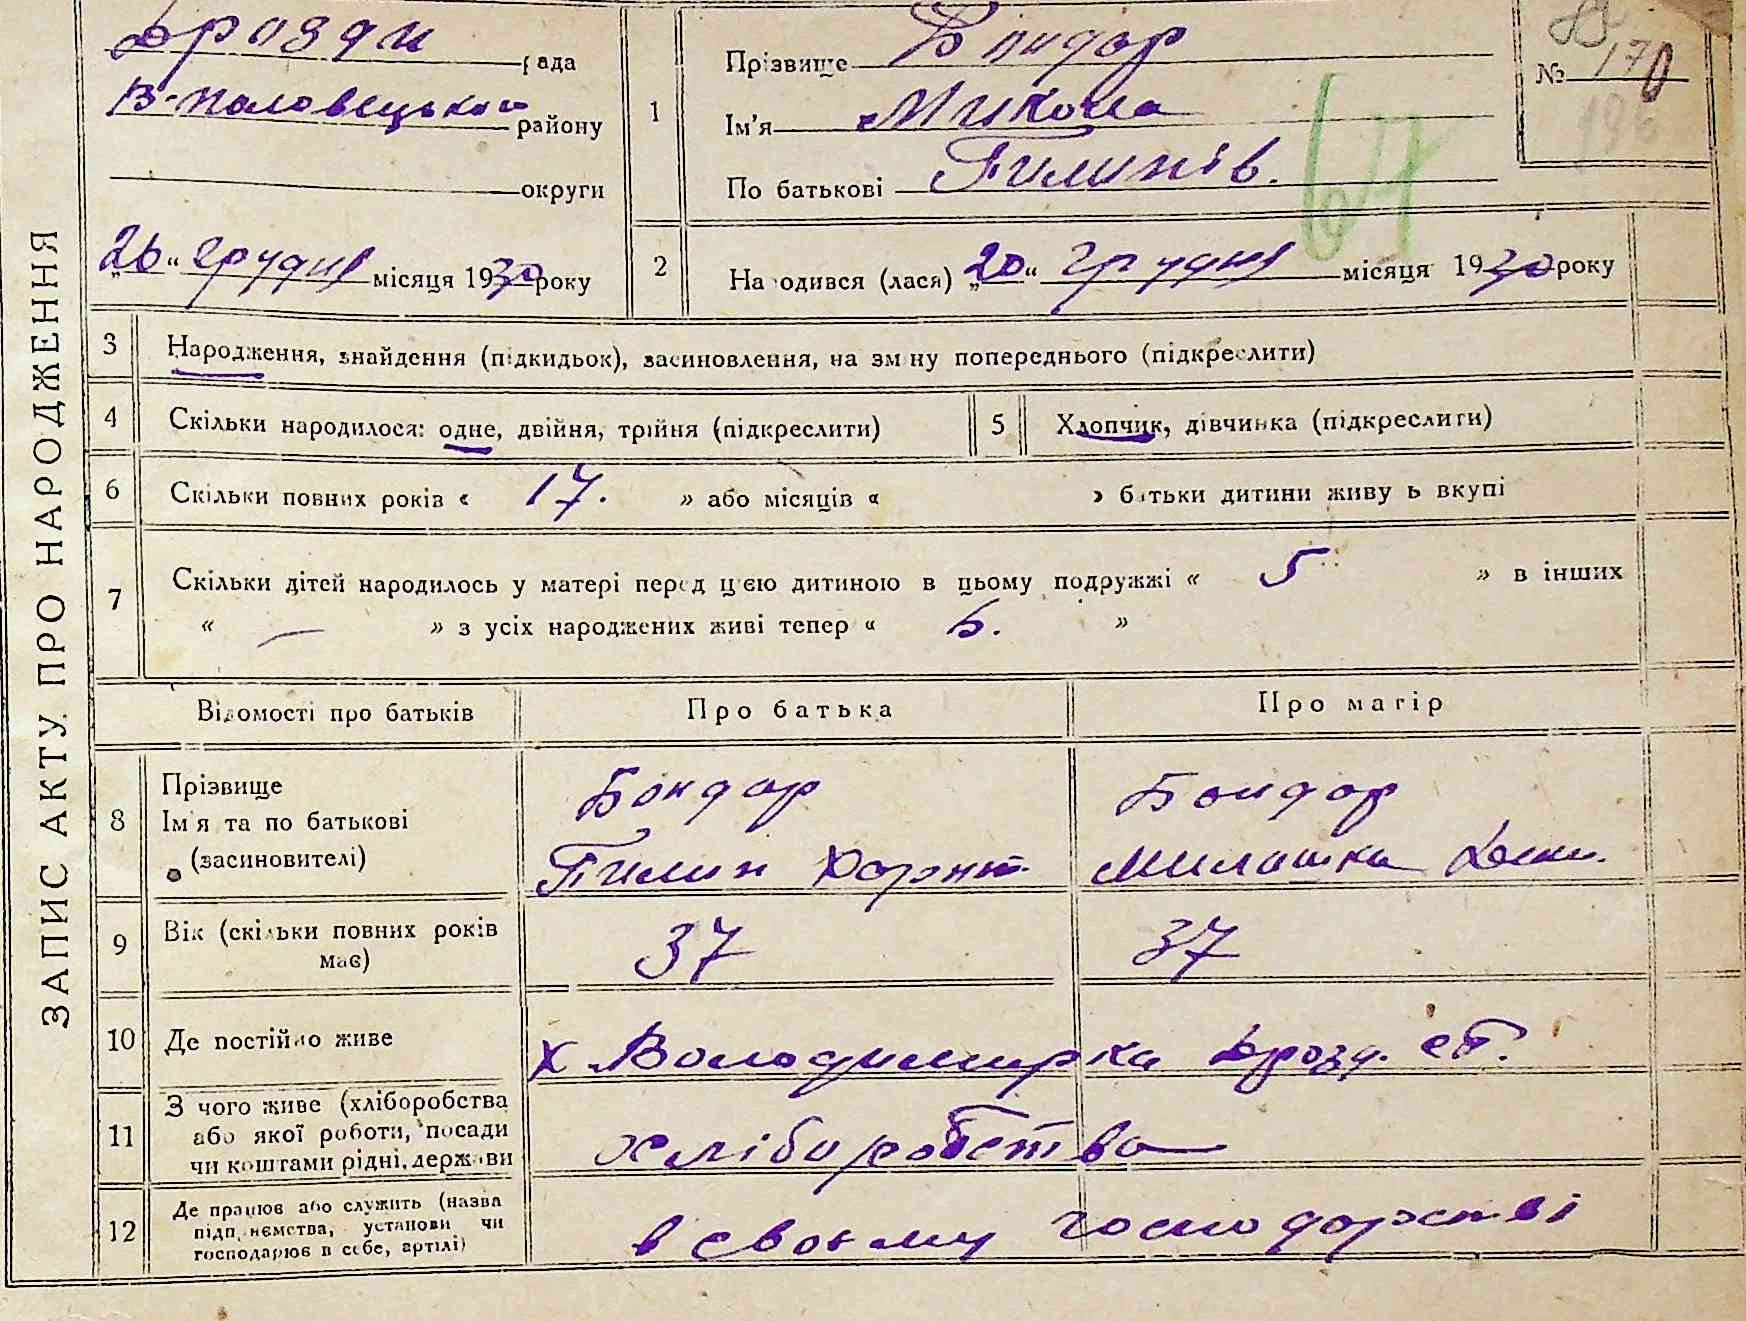 ЗАПИС АКТУ ПРО НАРОДЖЕННЯ
Дрозди рада
В-Половецького району
округи
„26“ грудня місяця 1930 року
1
Прізвище Бондар
Ім'я Микола
По батькові Пилипів.
№ 170
196
67
2
Народився (лася) „20“ грудня місяця 1930 року
3 Народження, знайдення (підкидьок), засиновлення, на зміну попереднього (підкреслити)
4 Скільки народилося: одне, двійня, трійня (підкреслити)
5 Хлопчик, дівчинка (підкреслити)
6 Скільки повних років « 17. » або місяців « » батьки дитини живуть вкупі
7 Скільки дітей народилось у матері перед цією дитиною в цьому подружжі « 5 » в інших
« — » з усіх народжених живі тепер « 6. »
Відомості про батьків
Про батька
Про матір
8 Прізвище
Ім'я та по батькові
(засиновителі)
Бондар
Пилип Харит.
Бондар
Милашка
9 Вік (скільки повних років
має)
37
37
10 Де постійно живе
х Володимирка Дрозд. ст.
11 З чого живе (хліборобства
або якої роботи, посади
чи коштами рідні, держави
хліборобства
12 Де працює або служить (назва
підприємства, установи чи
господарює в себе, артілі)
в своєму господарстві